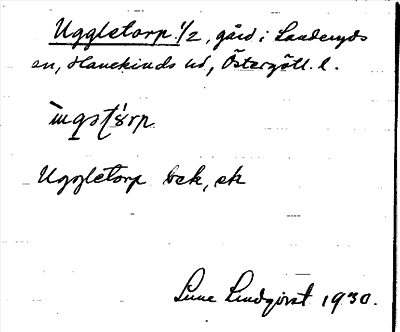 Uggletorp 1/2, gård i Landeryds
sn, Hanekinds hd, Östergötl. l.
Uggletorp bek, ek
Sune Lindqvist 1930.